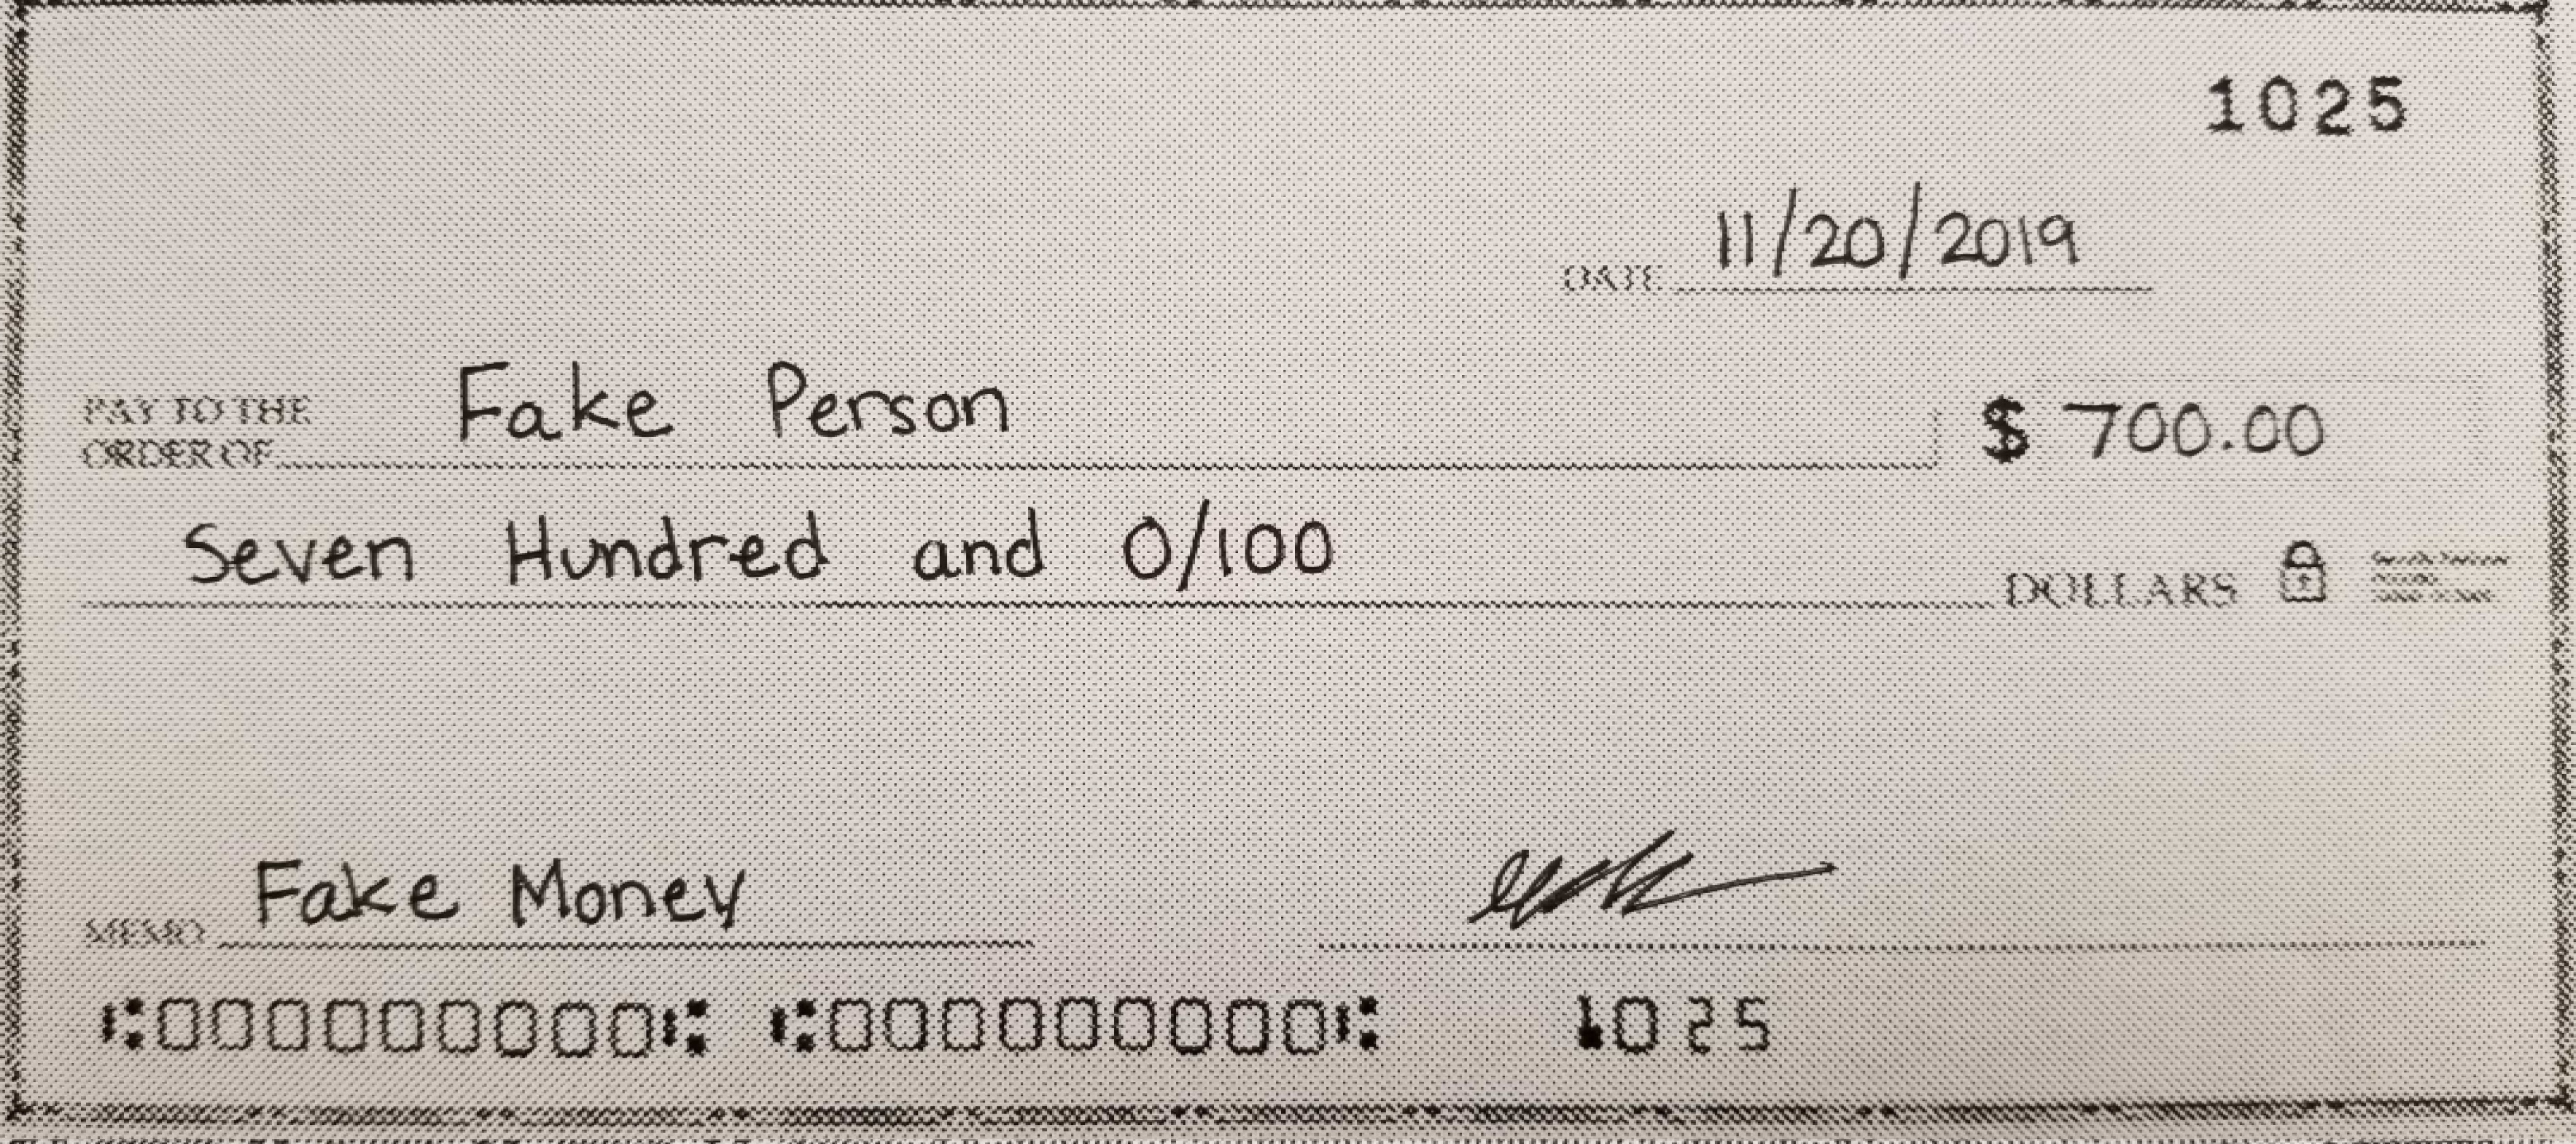 1025
DATE 11/20/2019
PAY TO THE
ORDER OF Fake Person $ 700.00
Seven Hundred and 0/100 DOLLARS
MEMO Fake Money
⑆000000000⑆ ⑆000000000⑆ 1025